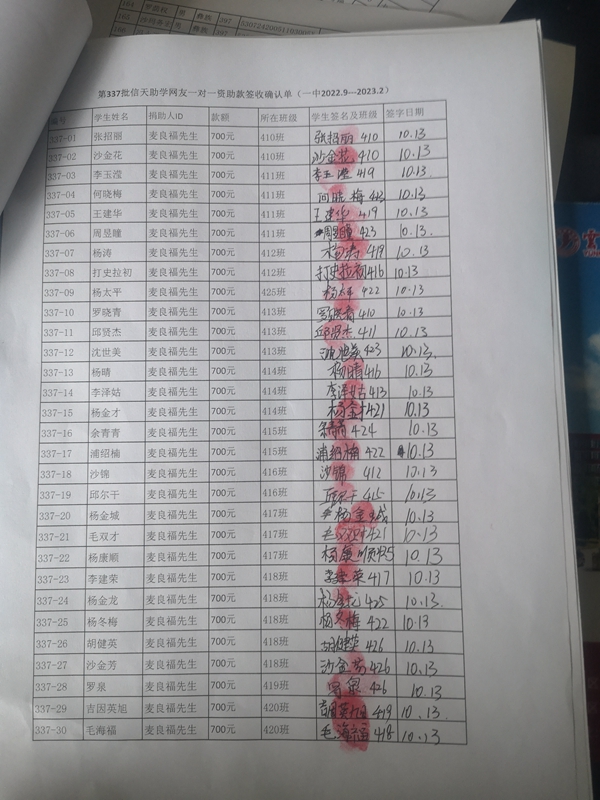 164
165
第337批信天助学网友一对一资助款签收确认单（一中2022.9---2023.2）
编号 学生姓名 捐助人ID 款额 所在班级 学生签名及班级 签字日期
337-01 张招丽 麦良福先生 700元 410班 张招丽 410 10.13
337-02 沙金花 麦良福先生 700元 410班 沙金花 410 10.13
337-03 李玉滢 麦良福先生 700元 411班 李玉滢 419 10.13
337-04 何晓梅 麦良福先生 700元 411班 何晓梅 423 10.13
337-05 王建华 麦良福先生 700元 411班 王建华 419 10.13
337-06 周昱瞳 麦良福先生 700元 411班 周昱瞳 423 10.13
337-07 杨涛 麦良福先生 700元 412班 杨涛 419 10.13
337-08 打史拉初 麦良福先生 700元 412班 打史拉初 416 10.13
337-09 杨太平 麦良福先生 700元 425班 杨太平 422 10.13
337-10 罗晓青 麦良福先生 700元 413班 罗晓青 410 10.13
337-11 邱贤杰 麦良福先生 700元 413班 邱贤杰 411 10.13
337-12 沈世美 麦良福先生 700元 413班 沈世美 423 10.13
337-13 杨晴 麦良福先生 700元 414班 杨晴 416 10.13
337-14 李泽姑 麦良福先生 700元 414班 李泽姑 413 10.13
337-15 杨金才 麦良福先生 700元 414班 杨金才 421 10.13
337-16 余青青 麦良福先生 700元 415班 余青青 424 10.13
337-17 浦绍楠 麦良福先生 700元 415班 浦绍楠 422 10.13
337-18 沙锦 麦良福先生 700元 416班 沙锦 412 10.13
337-19 邱尔干 麦良福先生 700元 416班 邱尔干 415 10.13
337-20 杨金城 麦良福先生 700元 417班 杨金城 10.13
337-21 毛双才 麦良福先生 700元 417班 毛双才 421 10.13
337-22 杨康顺 麦良福先生 700元 417班 杨康顺 10.13
337-23 李建荣 麦良福先生 700元 418班 李建荣 417 10.13
337-24 杨金龙 麦良福先生 700元 418班 杨金龙 425 10.13
337-25 杨冬梅 麦良福先生 700元 418班 杨冬梅 422 10.13
337-26 胡健英 麦良福先生 700元 418班 胡健英 426 10.13
337-27 沙金芳 麦良福先生 700元 418班 沙金芳 426 10.13
337-28 罗泉 麦良福先生 700元 419班 罗泉 426 10.13
337-29 吉因英旭 麦良福先生 700元 420班 吉因英旭 419 10.13
337-30 毛海福 麦良福先生 700元 420班 毛海福 418 10.13